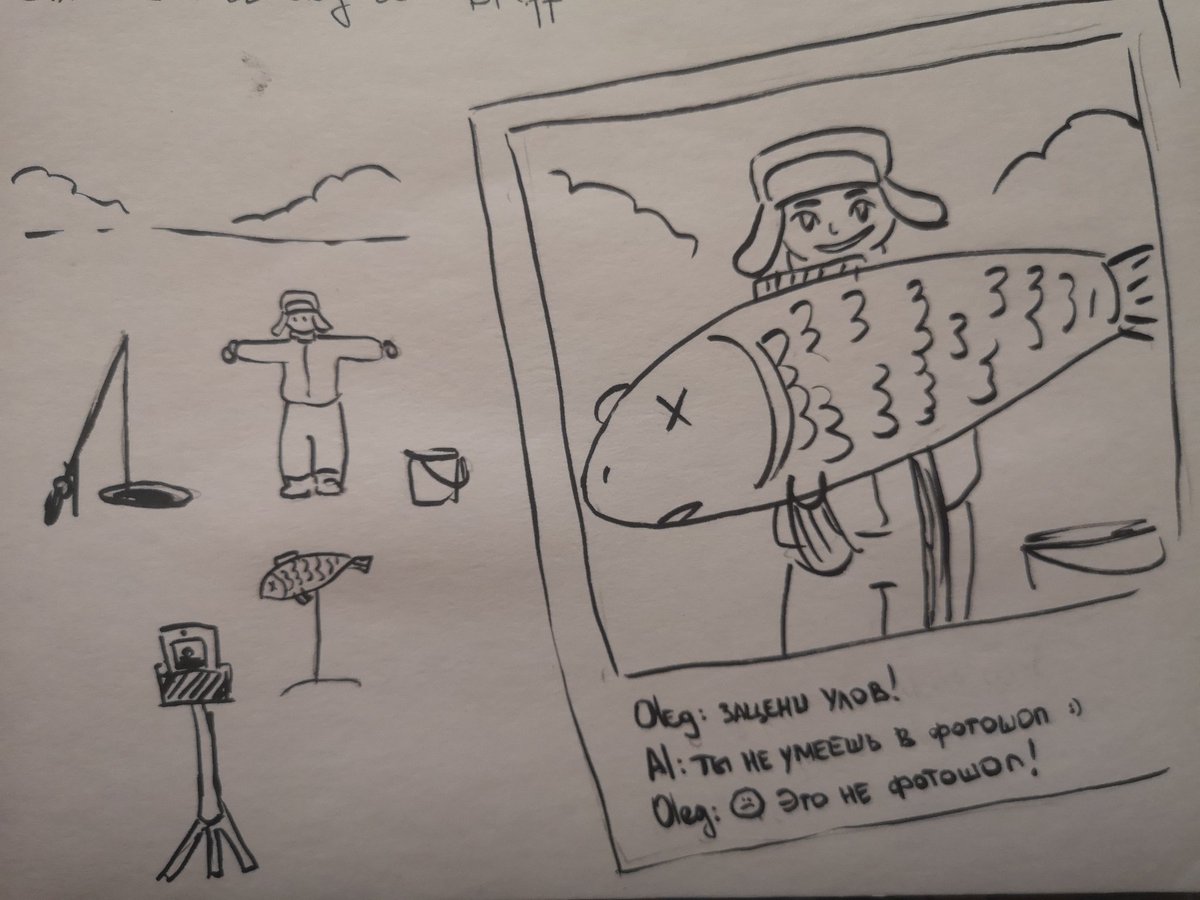 Oleg: ЗАЦЕНИ УЛОВ!
Al: ТЫ НЕ УМЕЕШЬ В ФОТОШОП :)
Oleg: ☹ ЭТО НЕ ФОТОШОП!